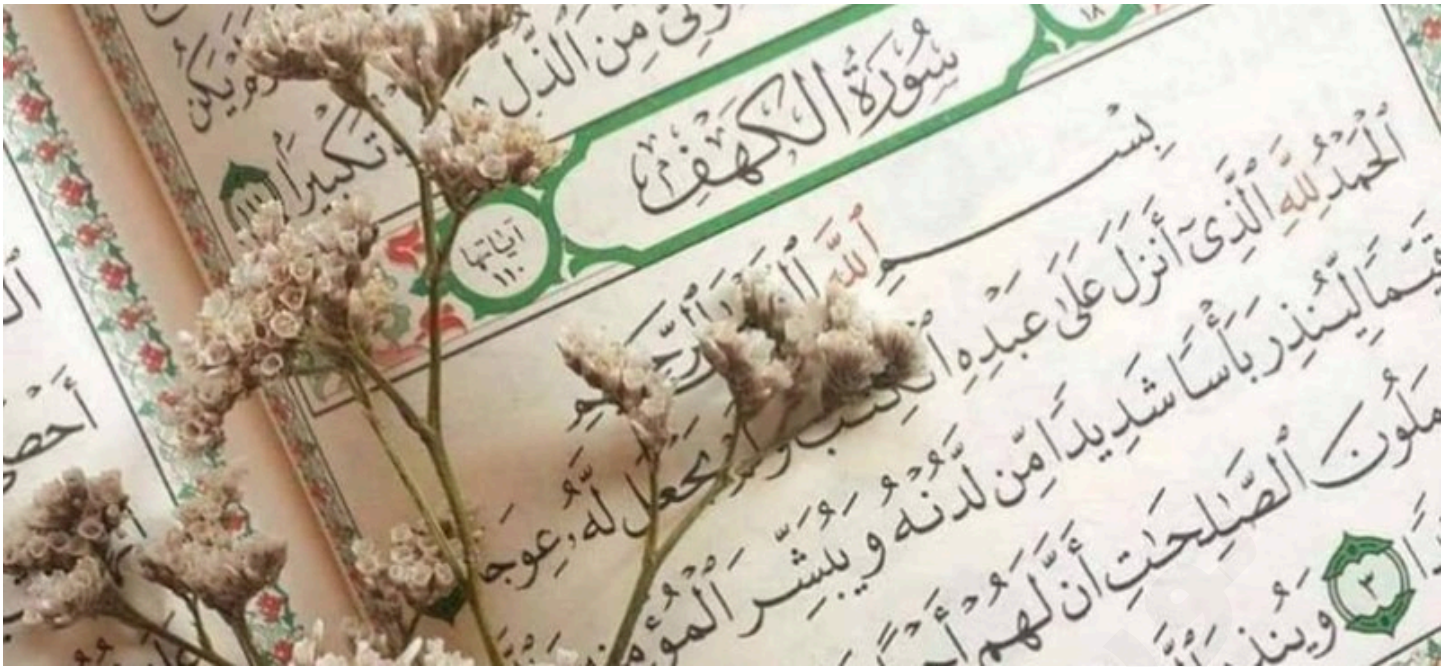 وَلِيٌّ مِّنَ ٱلذُّلِّ
تَكْبِيرًا ١١١
سُورَةُ الكَهْفِ
١٨
آياتها
١١٠
بِسْمِ ٱللَّهِ ٱلرَّحِيمِ
ٱلْحَمْدُ لِلَّهِ ٱلَّذِىٓ أَنزَلَ عَلَىٰ عَبْدِهِ ٱلْكِتَٰبَ وَلَمْ يَجْعَل لَّهُۥ عِوَجَا
قَيِّمًا لِّيُنذِرَ بَأْسًا شَدِيدًا مِّن لَّدُنْهُ وَيُبَشِّرَ ٱلْمُؤْمِنِينَ
ٱلصَّٰلِحَٰتِ أَنَّ لَهُمْ
٣ وَيُنذِرَ